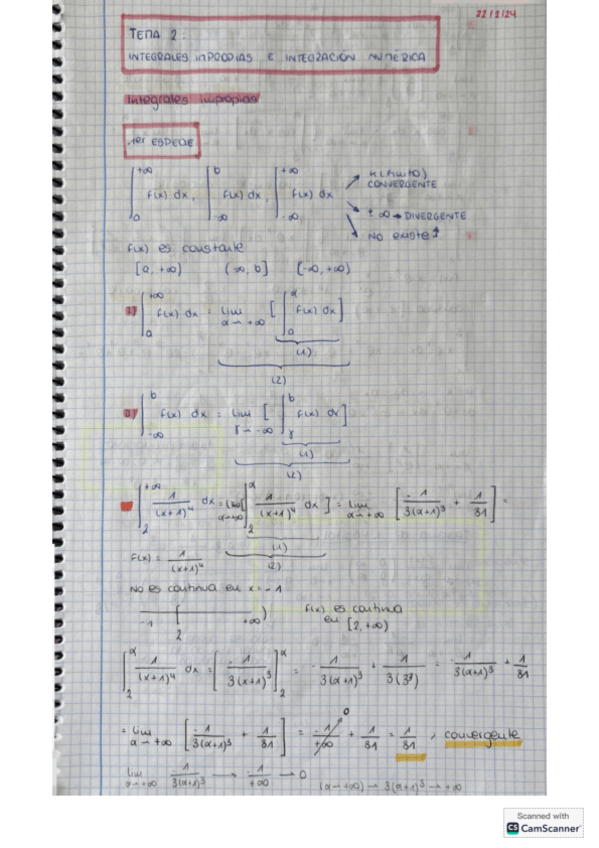 22/2/24
TEMA 2:
INTEGRALES IMPROPIAS E INTEGRACIÓN NUMÉRICA
Integrales impropias
1er ESPECIE
∫_a^{+∞} f(x) dx, ∫_{-∞}^b f(x) dx, ∫_{-∞}^{+∞} f(x) dx
K (finito)
CONVERGENTE
± ∞ → DIVERGENTE
NO existe ∄
[a, +∞) (-∞, b] (-∞, +∞)
∫_a^{+∞} f(x) dx = lim_{α→+∞} [ ∫_a^α f(x) dx ]
(1)
(2)
∫_{-∞}^b f(x) dx = lim_{γ→-∞} [ ∫_γ^b f(x) dx ]
(1)
(2)
∫_2^{+∞} 1/(x+1)⁴ dx = lim_{α→+∞} [ ∫_2^α 1/(x+1)⁴ dx ] = lim_{α→+∞} [ -1/3(α+1)³ + 1/81 ] =
(1)
(2)
f(x) = 1/(x+1)⁴
NO es continua en x = -1
-1 [ +∞)
2
f(x) es continua
en [2, +∞)
∫_2^α 1/(x+1)⁴ dx = [ -1/3(x+1)³ ]_2^α = -1/3(α+1)³ + 1/3(3³) = -1/3(α+1)³ + 1/81
= lim_{α→+∞} [ -1/3(α+1)³ + 1/81 ] = -1/+∞ 0 + 1/81 = 1/81, convergente
lim_{α→+∞} 1/3(α+1)³ → 1/+∞ → 0 (α→+∞) → 3(α+1)³ → +∞
Scanned with
CS CamScanner